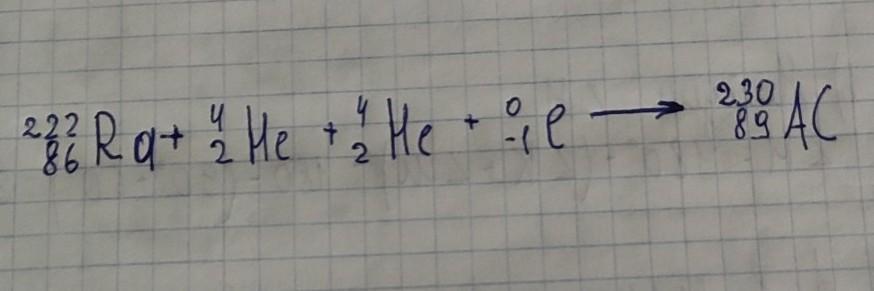 ²²²₈₆Ra + ⁴₂He + ⁴₂He + ⁰₋₁e → ²³⁰₈₉AC